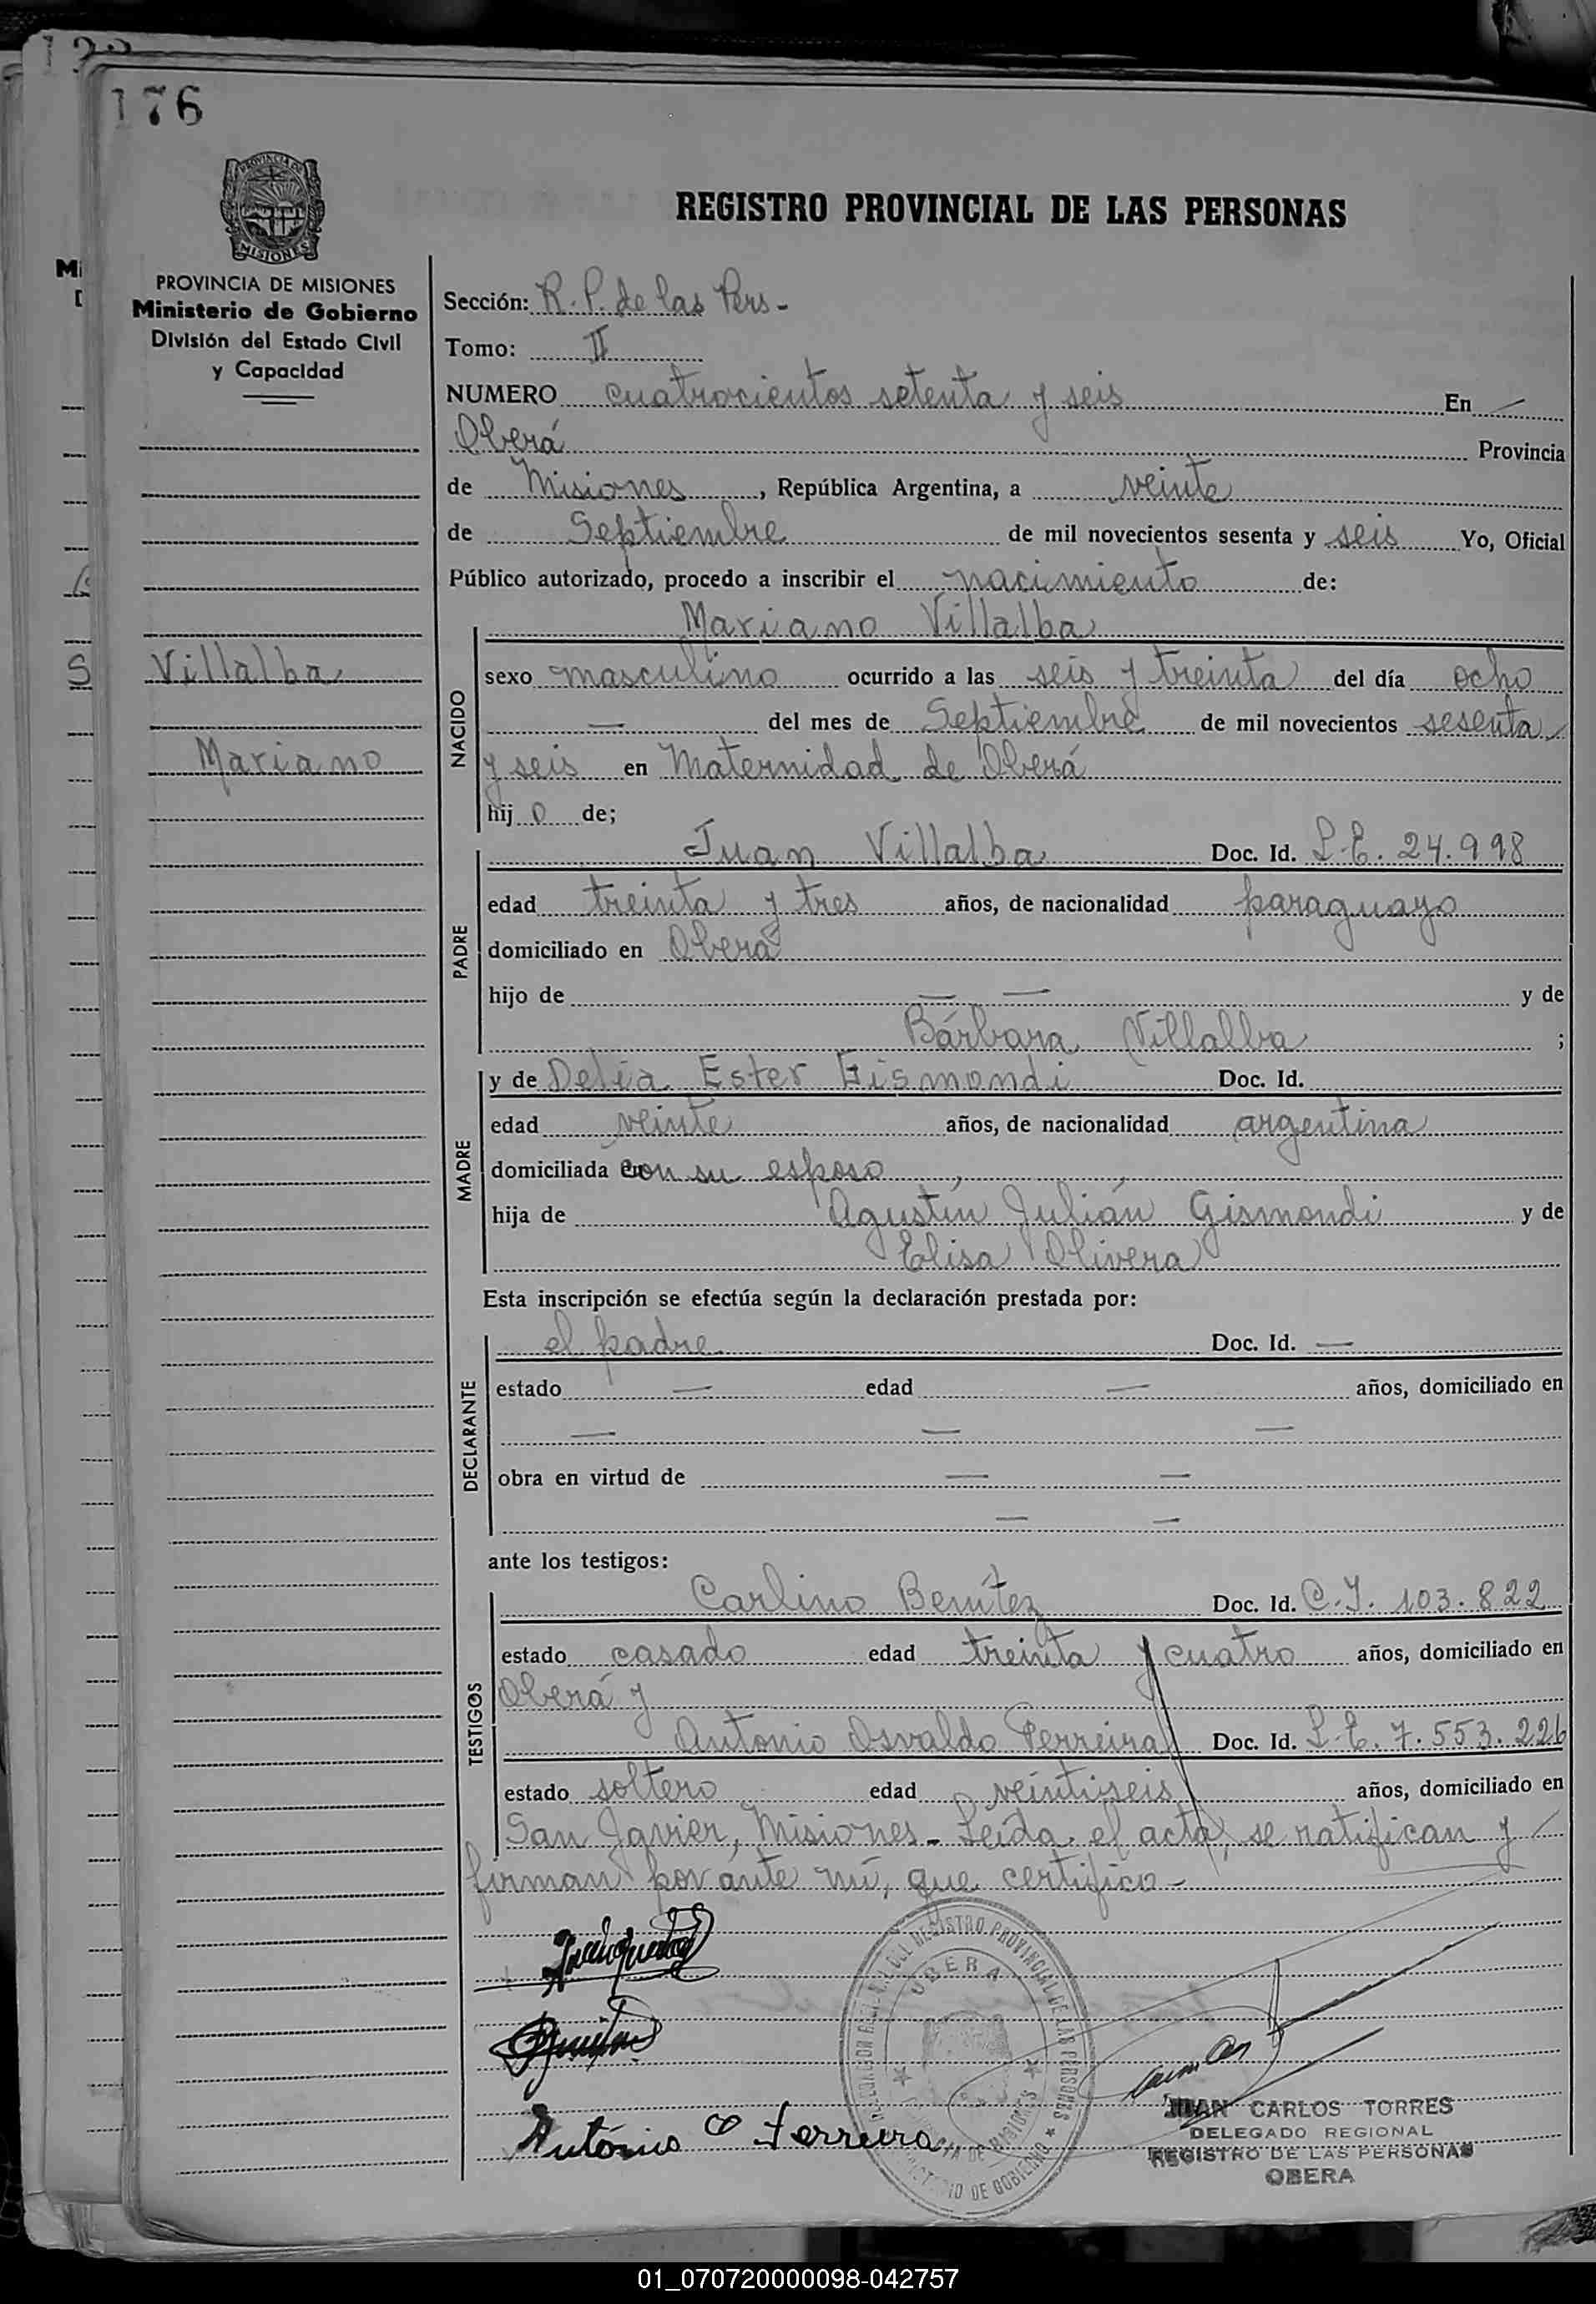 176
PROVINCIA DE MISIONES
PROVINCIA DE MISIONES
Ministerio de Gobierno
División del Estado Civil
y Capacidad
Villalba
Mariano
REGISTRO PROVINCIAL DE LAS PERSONAS
Sección: R. P. de las Pers -
Tomo: II
NUMERO cuatrocientos setenta y seis En —
Oberá Provincia
de Misiones, República Argentina, a veinte
de Septiembre de mil novecientos sesenta y seis Yo, Oficial
Público autorizado, procedo a inscribir el nacimiento de:
Mariano Villalba
NACIDO
sexo masculino ocurrido a las seis y treinta del día ocho
— del mes de Septiembre de mil novecientos sesenta
y seis en Maternidad de Oberá
hij o de;
PADRE
Juan Villalba Doc. Id. L.E. 24.998
edad treinta y tres años, de nacionalidad paraguayo
domiciliado en Oberá
hijo de — — y de
Bárbara Villalba ;
MADRE
y de Delia Ester Gismondi Doc. Id.
edad veinte años, de nacionalidad argentina
domiciliada con su esposo
hija de Agustín Julián Gismondi y de
Elisa Olivera
Esta inscripción se efectúa según la declaración prestada por:
DECLARANTE
el padre Doc. Id. —
estado — edad — años, domiciliado en
— — —
obra en virtud de — —
— —
ante los testigos:
TESTIGOS
Carlino Benítez Doc. Id. C.I. 103.822
estado casado edad treinta y cuatro años, domiciliado en
Oberá y
Antonio Osvaldo Ferreira Doc. Id. L.E. 7.553.226
estado soltero edad veintiseis años, domiciliado en
San Javier, Misiones - Leída el acta, se ratifican y —
firman por ante mí, que certifico -
OBERA
Antonio O Ferreira
JUAN CARLOS TORRES
DELEGADO REGIONAL
REGISTRO DE LAS PERSONAS
OBERA
01_070720000098-042757